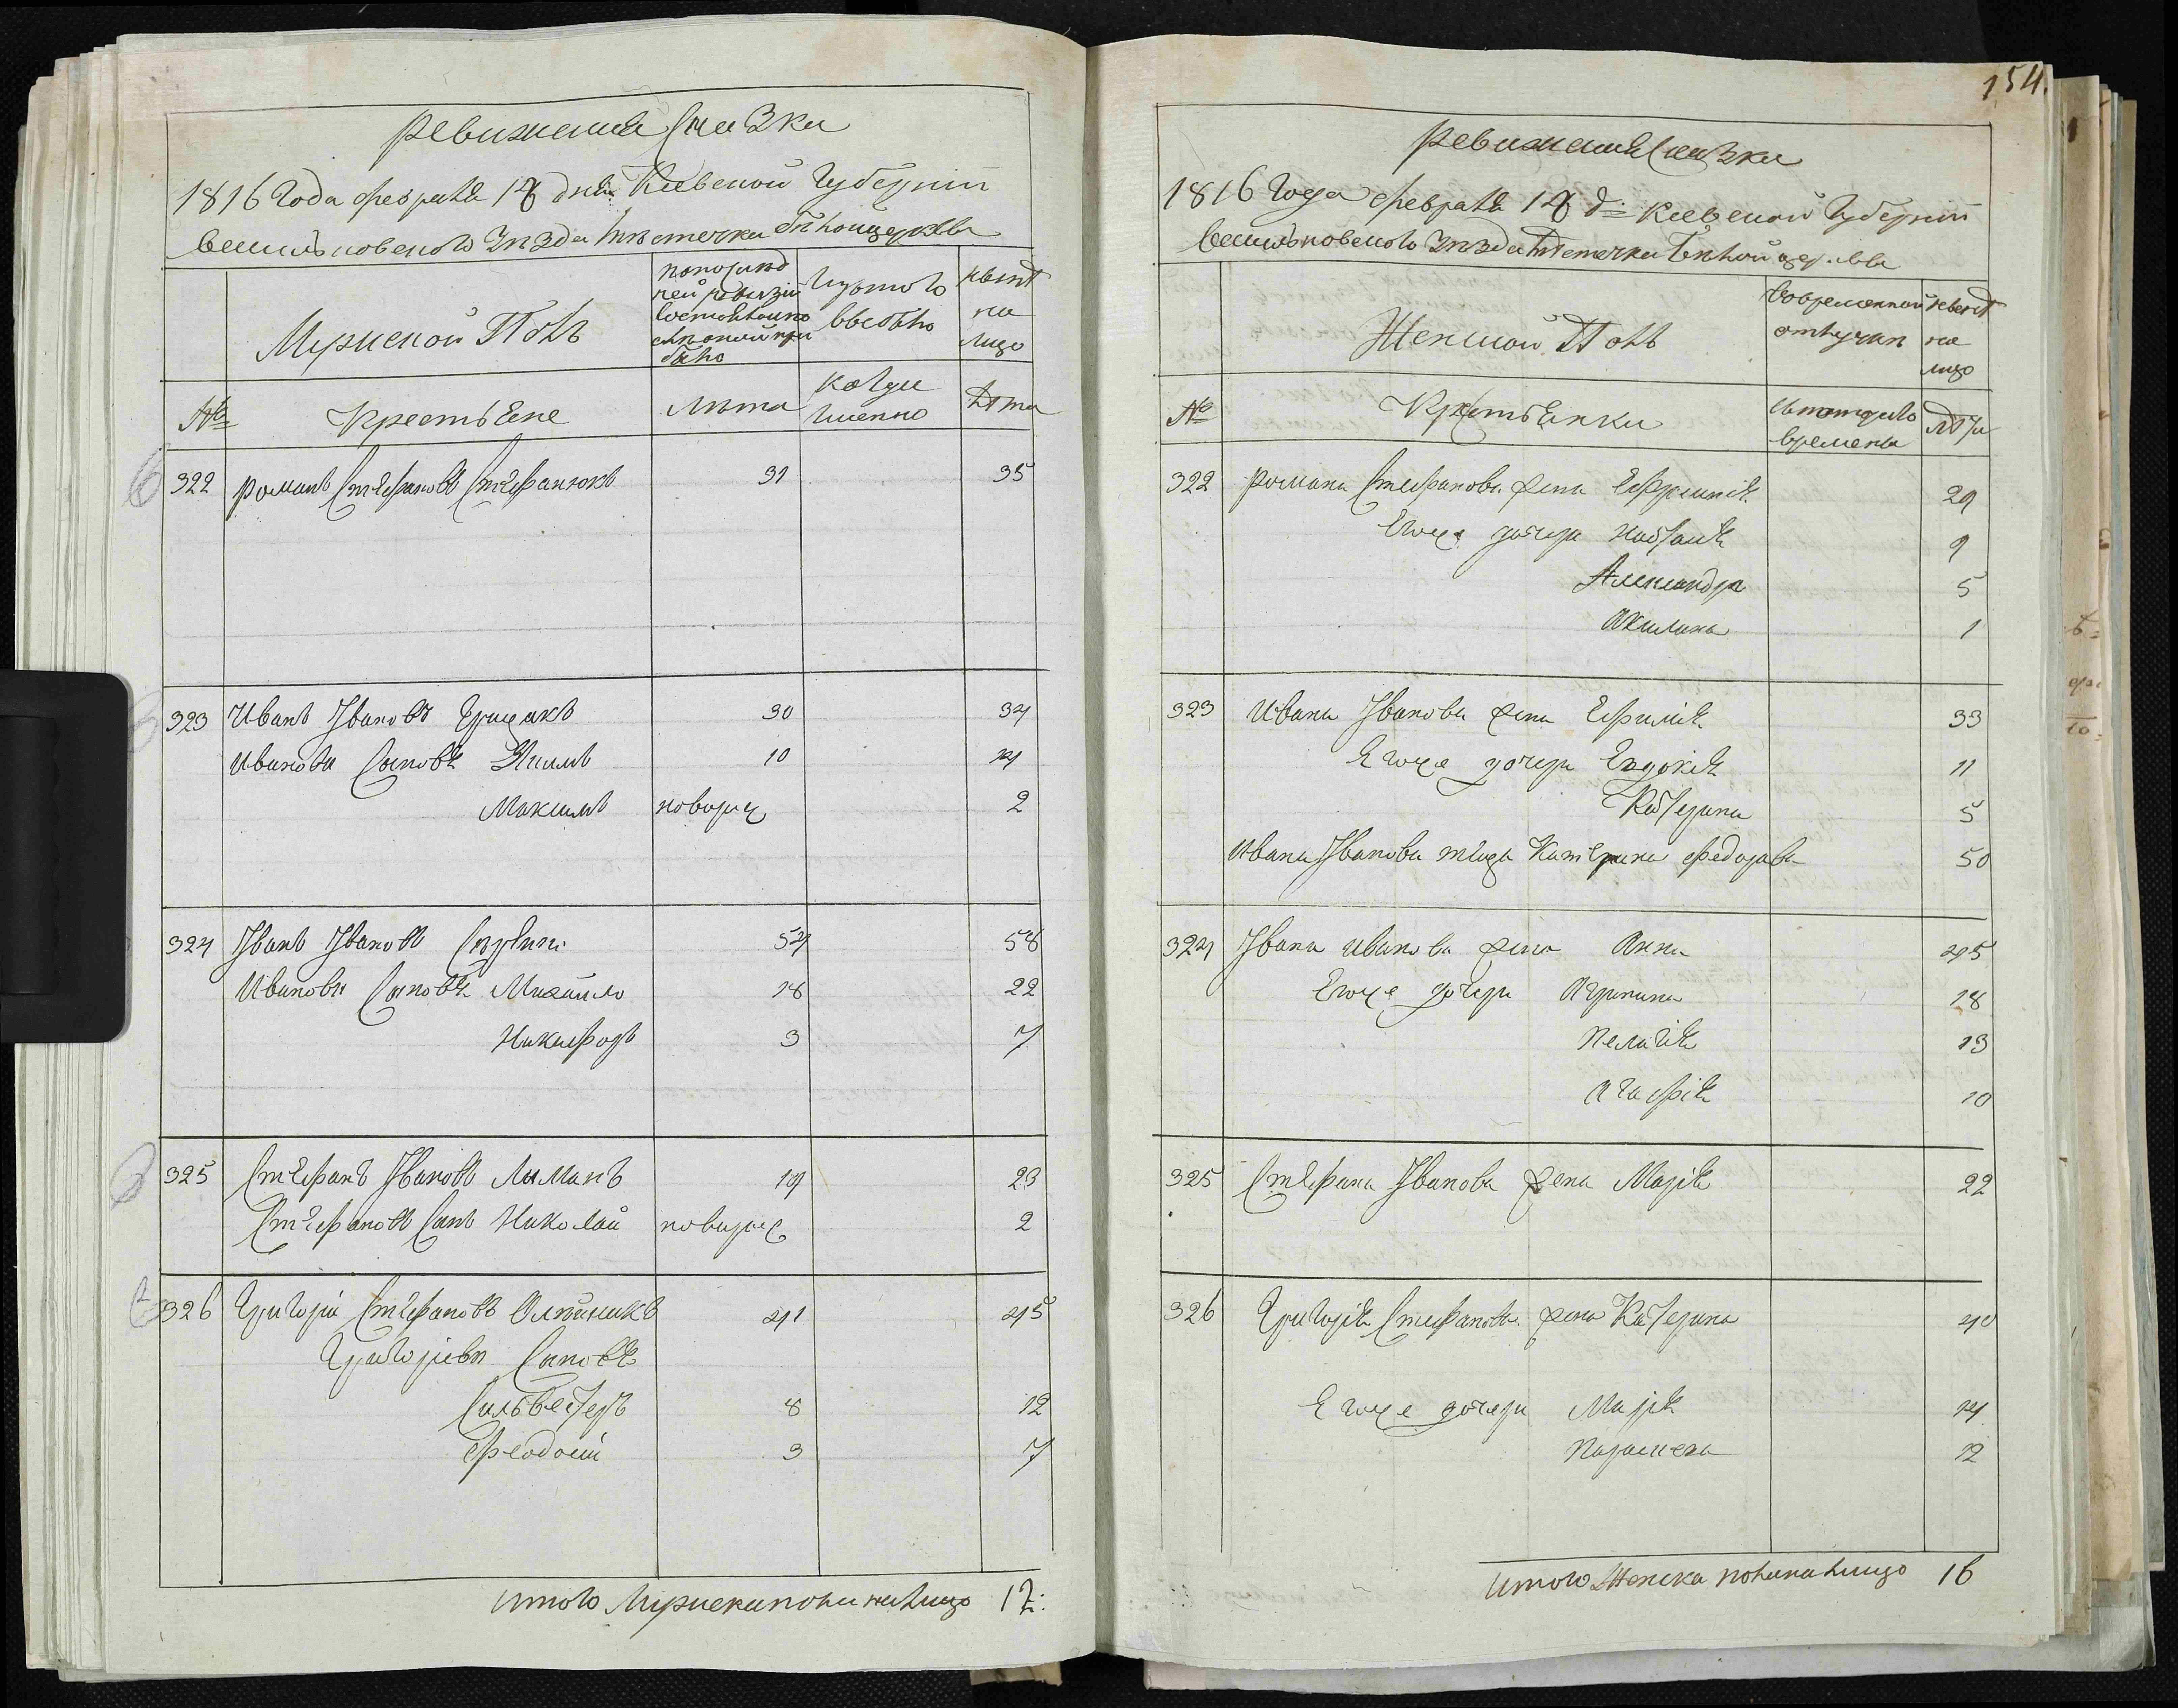 ревижская Сказка
1816 Года февраля 18 дня Киевской Губерніи
васильковского Уезда местечка белойцеркви
Мужеской Полъ
по последней ревизіи состояло
Изъ того выбыло
ныне на лицо
№ Крестьяне лета когда именно лета
322 Романъ Стефановъ Стефанюкъ 31 35
323 Иванъ Ивановъ Грицакъ 30 34
Иванова Сыновя Якимъ 10 14
Максимъ новорож 2
324 Иванъ Ивановъ 54 58
Иванова Сыновя Михайло 18 22
Никифоръ 3 7
325 Стефанъ Ивановъ Лиманъ 19 23
Стефановъ Сынъ Николай новорож 2
326 Григорій Стефановъ Олейникъ 41 45
Григоріева Сыновя
Сильвестеръ 8 12
Феодосій 3 7
Итого Мужеска пола на лицо 12:
154.
ревижская Сказка
1816 Года февраля 18 д: Киевской Губерніи
васильковского Уезда местечка белой церкви
Женской Полъ
Во временной отлучки
ныне на лицо
№ Крестьянки Скотораго времены лета
322 Романа Стефанова жена Ефросинія 29
Егоже дочери Настасія 9
Александра 5
Акилина 1
323 Ивана Иванова жена Ефимія 33
Егоже дочери Евдокія 11
Катерина 5
Ивана Иванова теща Катерина Федорова 50
324 Ивана Иванова жена Анна 45
Егоже дочери Агрипина 18
Пелагія 13
Агафія 10
325 Стефана Иванова жена Марія 22
326 Григорія Стефанова жена Катерина 40
Егоже дочери Марія 14
Параскева 12
Итого Женска пола на лицо 16